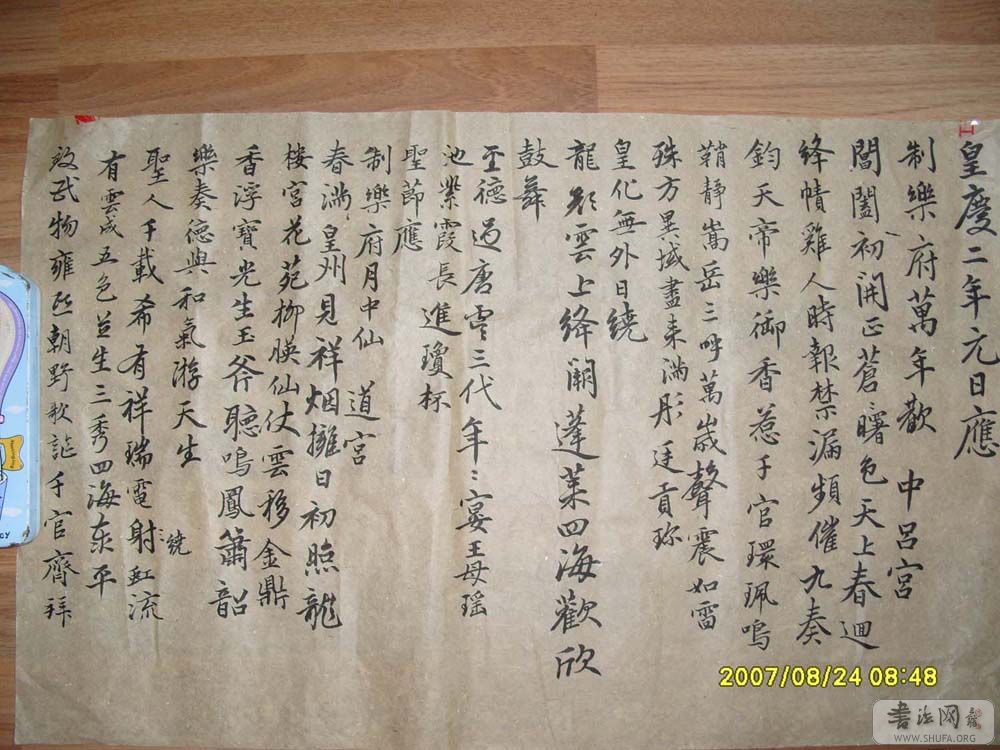 皇慶二年元日應
制樂府萬年歡 中呂宮
閶闔初開正蒼蒼曙色天上春迴
絳幘雞人時報禁漏頻催九奏
鈞天帝樂御香惹千官環珮鳴
鞘靜嵩岳三呼萬歲聲震如雷
殊方異域盡来滿彤廷貢珎
皇化無外日繞
龍顏雲上絳闕蓬萊四海歡欣
鼓舞
至德過唐虞三代年々宴王母瑶
池紫霞長進瓊杯
聖節應
制樂府月中仙 道宮
春滿皇州見祥烟擁日初照龍
楼宮花苑柳暎仙仗雲移金鼎
香浮寶光生玉斧聽鳴鳳簫韶
樂奏德與和氣游天生
聖人千載希有祥瑞電射虹流
有雲成五色芝生三秀四海太平
致武物雍熙朝野歌謳千官齊拜
繞
2007/08/24 08:48
書法网
WWW.SHUFA.ORG